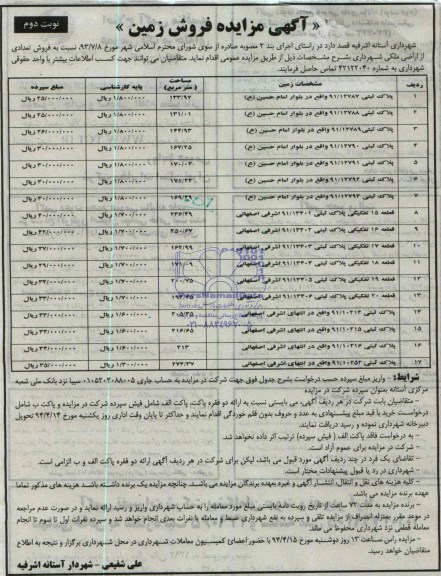 نوبت دوم
« آگهی مزایده فروش زمین »
شهرداری آستانه اشرفیه قصد دارد در راستای اجرای بند ۲ مصوبه صادره از سوی شورای محترم اسلامی شهر مورخ ۹۳/۷/۸، نسبت به فروش تعدادی
از اراضی ملکی شهرداری بشرح مشخصات ذیل از طریق مزایده عمومی اقدام نماید. متقاضیان می توانند جهت کسب اطلاعات بیشتر با واحد حقوقی
شهرداری به شماره ۴۲۱۲۲۰۴۰ تماس حاصل فرمایند.
ردیف مشخصات زمین مساحت (متر مربع) پایه کارشناسی مبلغ سپرده
۱ پلاک ثبتی ۹۱/۱۲۷۸۷ واقع در بلوار امام حسین (ع) ۱۳۳/۹۷ ۱/۸۰۰/۰۰۰ ریال ۲۵/۰۰۰/۰۰۰ ریال
۲ پلاک ثبتی ۹۱/۱۲۷۸۸ واقع در بلوار امام حسین (ع) ۱۳۱/۰۱ ۱/۸۰۰/۰۰۰ ریال ۲۵/۰۰۰/۰۰۰ ریال
۳ پلاک ثبتی ۹۱/۱۲۷۸۹ واقع در بلوار امام حسین (ع) ۱/۸۰۰/۰۰۰ ریال ۲۶/۰۰۰/۰۰۰ ریال
۴ پلاک ثبتی ۹۱/۱۲۷۹۰ واقع در بلوار امام حسین (ع) ۱۶۷/۲۵ ۱/۸۰۰/۰۰۰ ریال ۳۰/۰۰۰/۰۰۰ ریال
۵ پلاک ثبتی ۹۱/۱۲۷۹۱ واقع در بلوار امام حسین (ع) ۱/۸۰۰/۰۰۰ ریال ۳۰/۰۰۰/۰۰۰ ریال
۶ پلاک ثبتی ۹۱/۱۲۷۹۲ واقع در بلوار امام حسین (ع) ۱/۸۰۰/۰۰۰ ریال ۳۰/۰۰۰/۰۰۰ ریال
۷ پلاک ثبتی ۹۱/۱۲۷۹۳ واقع در بلوار امام حسین (ع) ۱/۸۰۰/۰۰۰ ریال ۳۰/۰۰۰/۰۰۰ ریال
۸ قطعه ۱۵ تفکیکی پلاک ثبتی ۹۱/۱۳۴۰۱ اشرفی اصفهانی ۲۳۶/۲۹ ۱/۷۰۰/۰۰۰ ریال
۹ قطعه ۱۶ تفکیکی پلاک ثبتی ۹۱/۱۳۴۰۲ اشرفی اصفهانی ۲۵۰/۶۷ ۱/۷۰۰/۰۰۰ ریال
۱۰ قطعه ۱۷ تفکیکی پلاک ثبتی ۹۱/۱۳۴۰۳ اشرفی اصفهانی ۱۶۲/۹۹ ۱/۷۰۰/۰۰۰ ریال ۲۷/۰۰۰/۰۰۰ ریال
۱۱ قطعه ۱۸ تفکیکی پلاک ثبتی ۹۱/۱۳۴۰۴ اشرفی اصفهانی ۱۷۱/۰۹ ۱/۷۰۰/۰۰۰ ریال ۲۹/۰۰۰/۰۰۰ ریال
۱۲ قطعه ۱۹ تفکیکی پلاک ثبتی ۹۱/۱۳۴۰۵ اشرفی اصفهانی ۱/۷۰۰/۰۰۰ ریال
۱۳ قطعه ۲۰ تفکیکی پلاک ثبتی ۹۱/۱۳۴۰۶ اشرفی اصفهانی ۱/۷۰۰/۰۰۰ ریال
۱۴ پلاک ثبتی ۹۱/۱۰۲۱۳ واقع در انتهای اشرفی اصفهانی ۲۰۵/۳۵ ۱/۶۰۰/۰۰۰ ریال ۳۳/۰۰۰/۰۰۰ ریال
۱۵ پلاک ثبتی ۹۱/۱۰۲۱۵ واقع در انتهای اشرفی اصفهانی ۲۱۶/۶۵ ۱/۶۰۰/۰۰۰ ریال ۳۳/۰۰۰/۰۰۰ ریال
۱۶ پلاک ثبتی ۹۱/۱۰۲۱۶ واقع در انتهای اشرفی اصفهانی ۲۱۳ ۱/۶۰۰/۰۰۰ ریال ۳۳/۰۰۰/۰۰۰ ریال
۱۷ پلاک ثبتی ۹۱/۱۰۲۵۲ واقع در انتهای اشرفی اصفهانی ۲۷۴/۳۷ ۱/۳۰۰/۰۰۰ ریال ۳۵/۰۰۰/۰۰۰ ریال
شرایط: - واریز مبلغ سپرده حسب درخواست بشرح جدول فوق جهت شرکت در مزایده به حساب جاری ۰۱۰۵۲۰۲۰۸۸۰۰۵ سیبا نزد بانک ملی شعبه
مرکزی آستانه بعنوان سپرده شرکت در مزایده
- متقاضیان بابت شرکت در هر ردیف آگهی، می بایستی نسبت به ارائه دو فقره پاکت، پاکت الف شامل فیش سپرده شرکت در مزایده و پاکت ب شامل
درخواست خرید با قید مبلغ پیشنهادی به عدد و حروف بدون قلم خوردگی اقدام نمایند و حداکثر تا پایان وقت اداری روز یکشنبه مورخ ۹۴/۴/۱۴ تحویل
دبیرخانه شهرداری نموده و رسید دریافت نمایند.
- به درخواست فاقد پاکت الف ( فیش سپرده) ترتیب اثر داده نخواهد شد.
- شرکت در مزایده برای عموم آزاد است.
- تقاضای یک فرد در چند ردیف آگهی مورد قبول می باشد، لیکن برای شرکت در هر ردیف آگهی ارائه دو فقره پاکت الف و ب الزامی است.
- شهرداری در رد یا قبول پیشنهادات مختار است.
- کلیه هزینه های نقل و انتقال، انتشار آگهی و غیره بعهده برندگان مزایده می باشد. چنانچه مزایده یک برنده داشته باشد هزینه های مذکور تماما
عهده برنده مزایده می باشد.
- برنده مزایده به مدت ۷۲ ساعت از تاریخ رویت نامه بایستی مبلغ مورد معامله را به حساب شهرداری واریز و رسید ارائه نماید و در صورت عدم مراجعه
در موعد مقرر بمنزله انصراف از مزایده تلقی و سپرده به نفع شهرداری ضبط و معامله با نفرات بعدی انجام خواهد شد و سپرده نفرات اول تا سوم تا انجام
معامله قطعی نزد شهرداری محفوظ می ماند.
- مزایده راس ساعت ۱۳ روز دوشنبه مورخ ۹۴/۴/۱۵ با حضور اعضای کمیسیون معاملات شهرداری در محل شهرداری برگزار و نتیجه به اطلاع
متقاضیان خواهد رسید.
علی شفیعی - شهردار آستانه اشرفیه